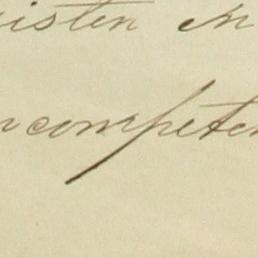 isten en
ncompeten